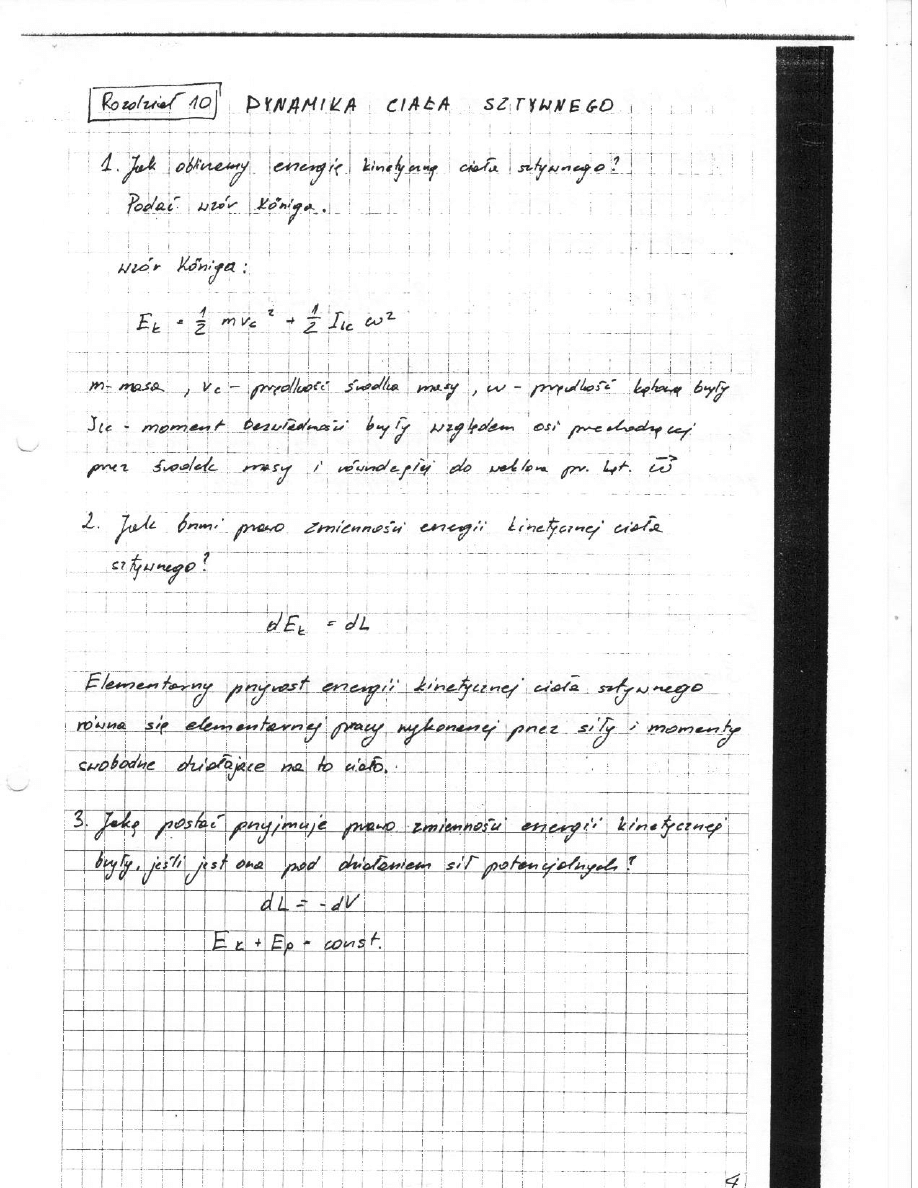 Rozdział 10 DYNAMIKA CIAŁA SZTYWNEGO
1. Jak obliczamy energię kinetyczną ciała sztywnego?
Podać wzór Königa.
wzór Königa:
E_k = 1/2 m v_c² + 1/2 I_lc ω²
m-masa, v_c - prędkość środka masy, ω - prędkość kątowa bryły
I_lc - moment bezwładności bryły względem osi przechodzącej
przez środek masy i równoległej do wektora pr. kąt. ω⃗
2. Jak brzmi prawo zmienności energii kinetycznej ciała
sztywnego?
dE_k = dL
Elementarny przyrost energii kinetycznej ciała sztywnego
równa się elementarnej pracy wykonanej przez siły i momenty
swobodne działające na to ciało.
3. Jaką postać przyjmuje prawo zmienności energii kinetycznej
bryły, jeśli jest ona pod działaniem sił potencjalnych?
dL = -dV
E_k + E_p = const.
4